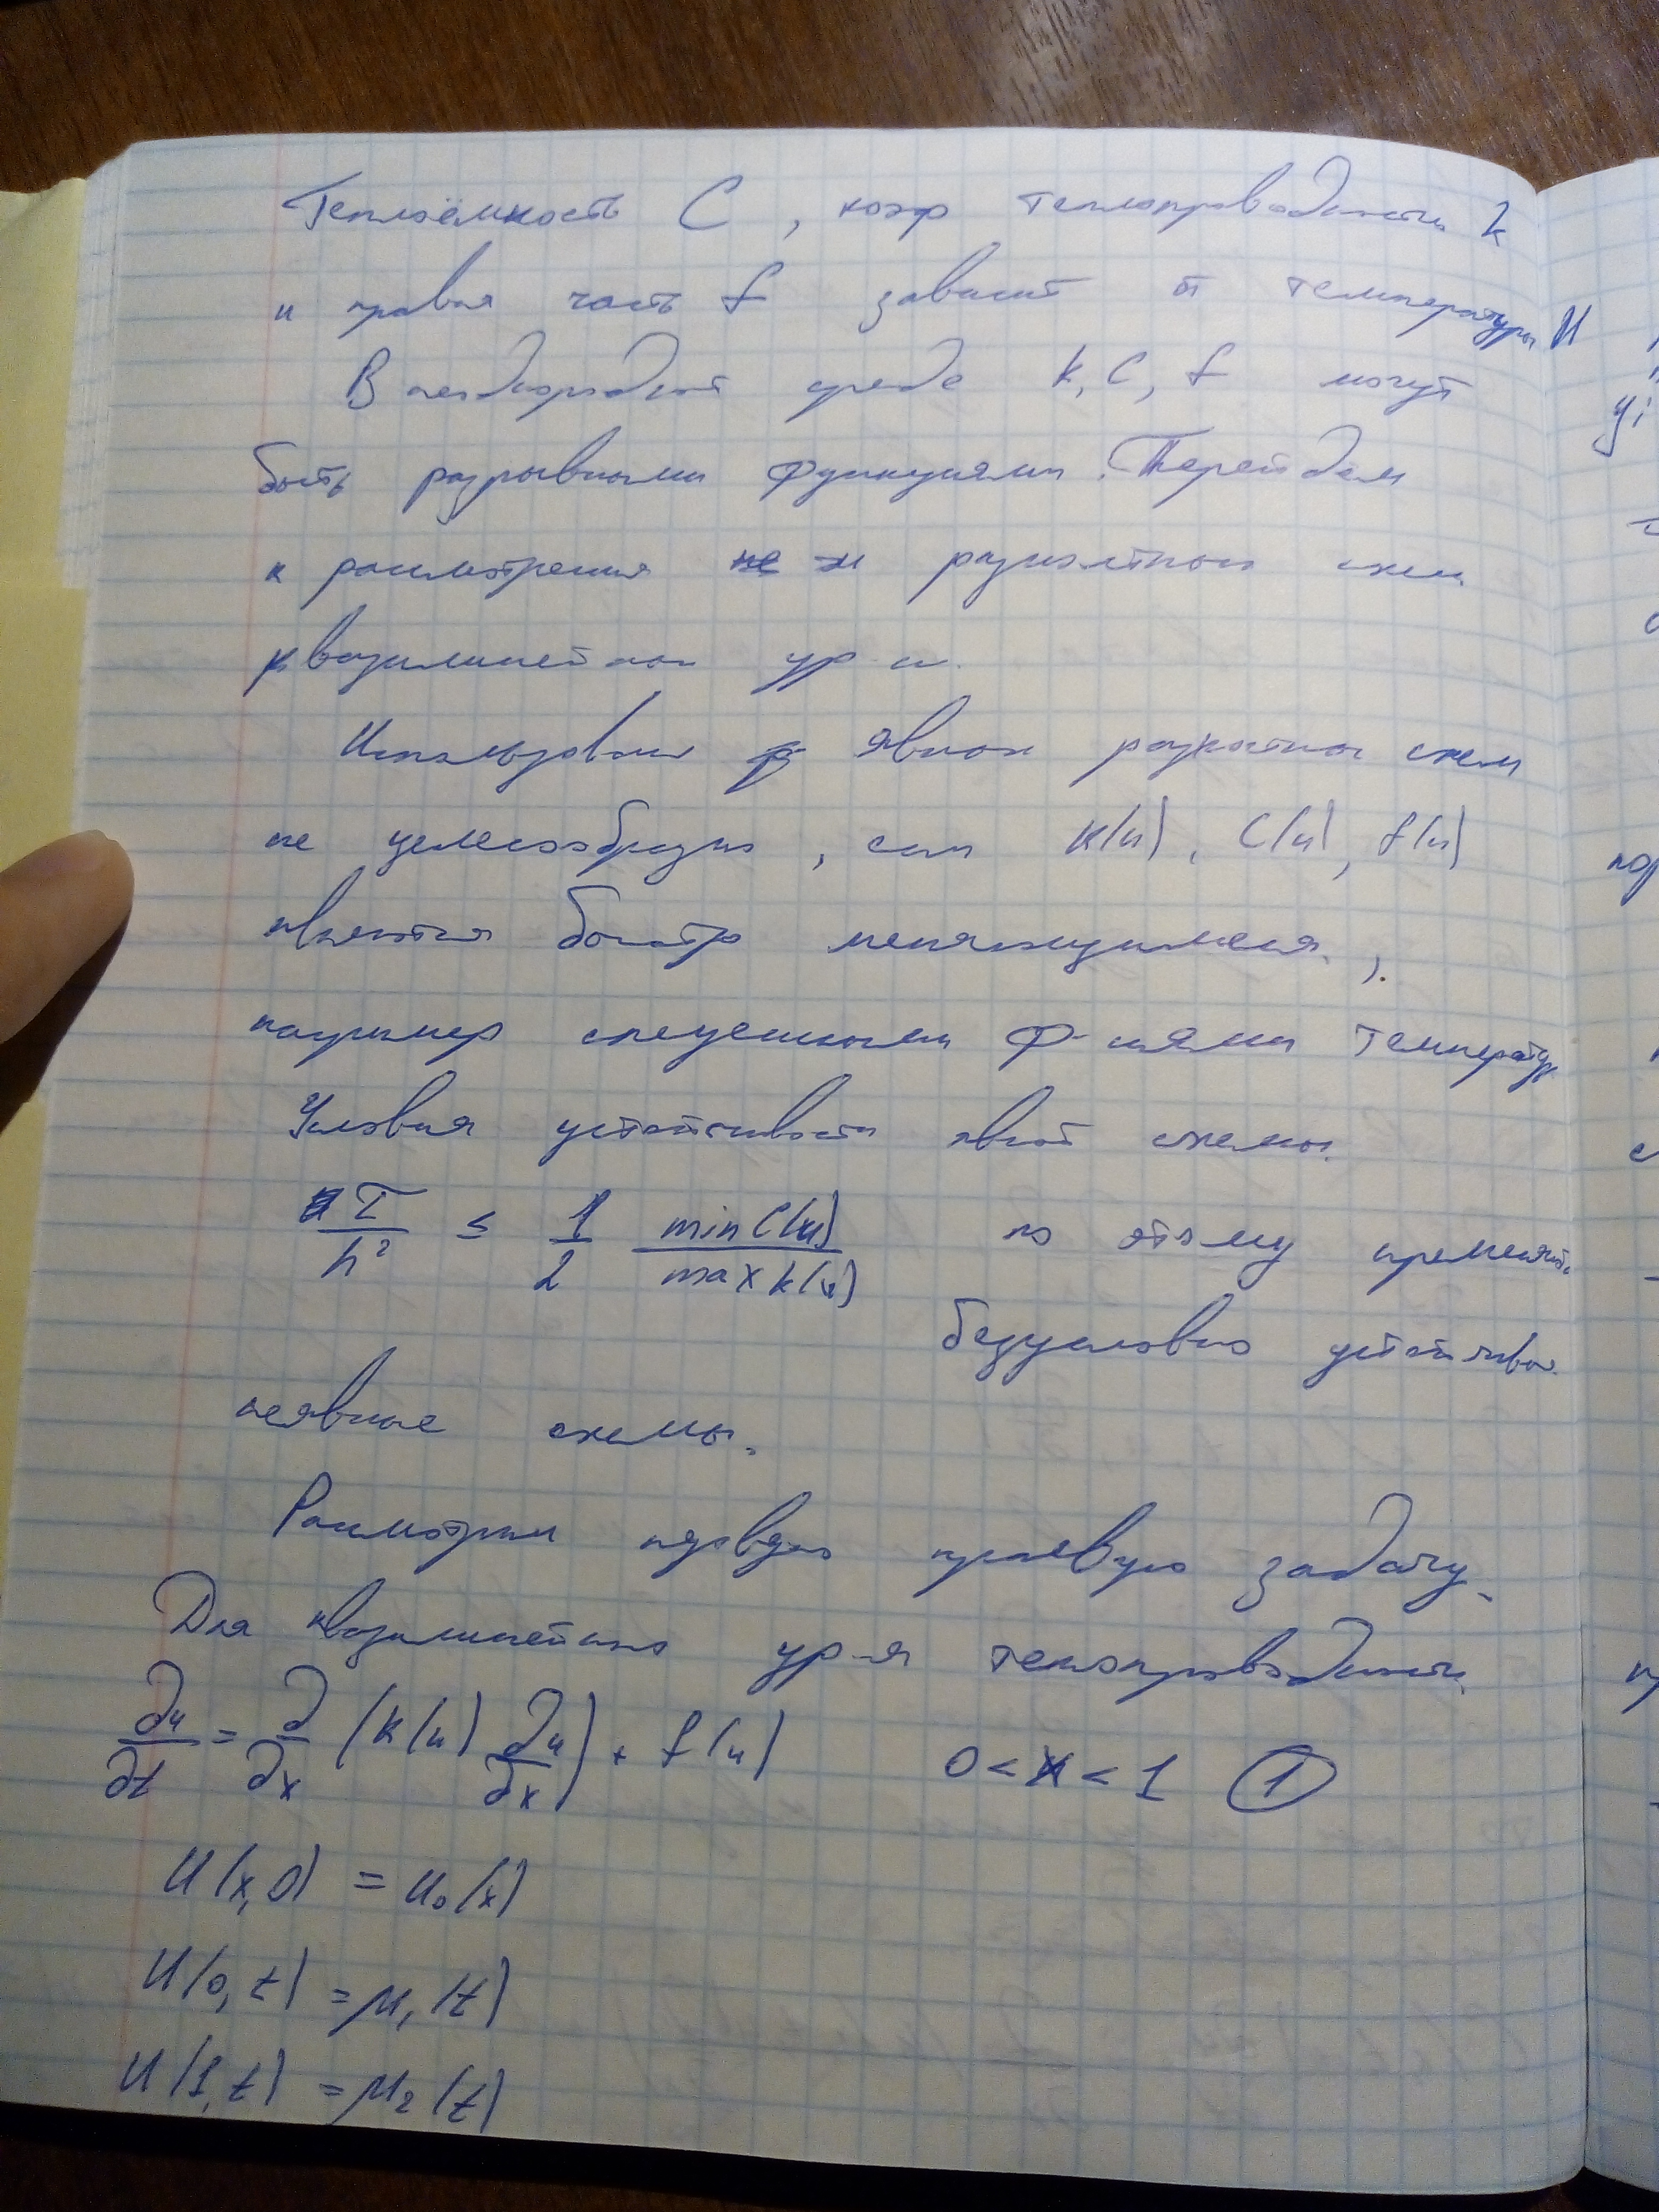 Теплоёмкость C, коэф теплопроводности k
и правая часть f зависит от температуры U
В неоднородной среде k, C, f могут
быть разрывными функциями. Перейдем
к рассмотрения разностной схем
квазилинейной ур-и.
Использован явной разностной схем
не целесообразно, если k(u), C(u), f(u)
являются быстро меняющимися,
например степенными ф-циями температур
Условия устойчивости явной схемы.
τ/h² ≤ 1/2 min C(u)/max k(u) по этому применять
безусловно устойчивые
неявные схемы.
Рассмотрим первую краевую задачу.
Для квазилинейного ур-я теплопроводности.
∂u/∂t = ∂/∂x (k(u) ∂u/∂x) + f(u) 0 < x < 1 ①
U(x,0) = u₀(x)
U(0,t) = μ₁(t)
U(1,t) = μ₂(t)